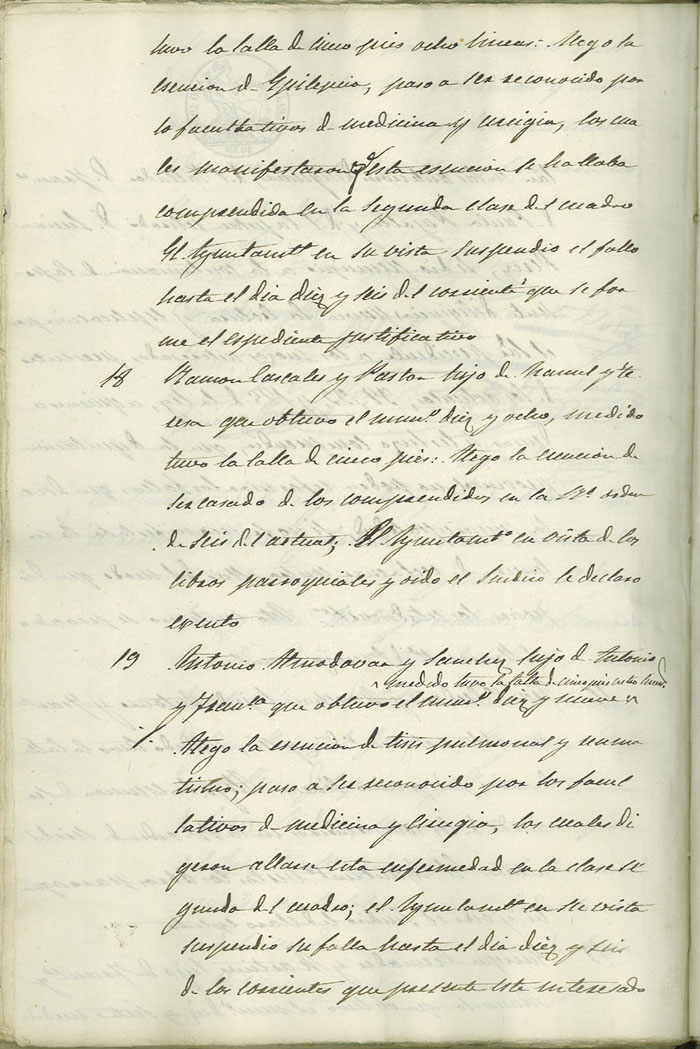 tuvo la talla de cinco pies ocho lineas: Alego la
esencion de Epilepcia, paso a ser reconocido por
lo facultativos de medicina y cirugia, los cua
les manifestaron q.e esta esencion se hallaba
comprendida en la segunda clase del cuadro
El Ayuntam.to en su vista suspendio el fallo
hasta el dia diez y seis del corriente que se for
me el espediente justificativo
18 Ramon Cascales y Pastor hijo de Manuel y Te
resa que obtuvo el num.o diez y ocho, medido
tuvo la talla de cinco pies: Alego la esencion de
ser casado de los comprendidos en la R.l orden
de seis del actual; El Ayuntam.to en vista de los
libros parroquiales y oido el Sindico le declaro
esento
19 Antonio Almodovar y Sanchez hijo de Antonio
medido tuvo la talla de cinco pies
y Fran.ca que obtuvo el num.o diez y nueve
Alego la esencion de tisis pulmonal y reuma
tismo; paso a ser reconocido por los facul
tativos de medicina y Cirugia, los cuales di
geron allarse esta enfermedad en la clase se
gunda del cuadro; el Ayuntam.to en su vista
suspendio su falla hasta el dia diez y seis
de los corrientes que presente este interesado